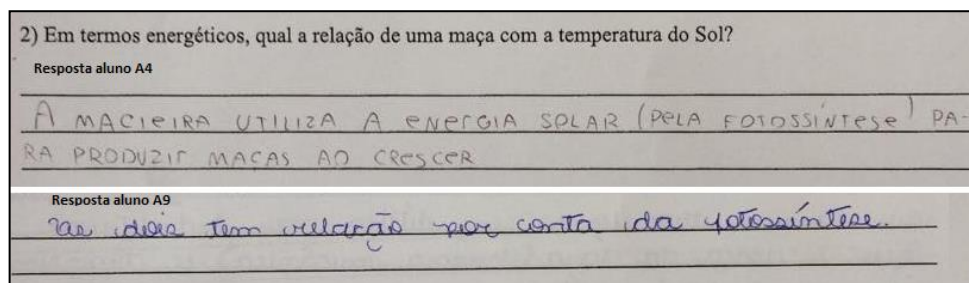 2) Em termos energéticos, qual a relação de uma maça com a temperatura do Sol?
Resposta aluno A4
A MACIEIRA UTILIZA A ENERGIA SOLAR (PELA FOTOSSÍNTESE) PA-
RA PRODUZIR MACAS AO CRESCER
Resposta aluno A9
dois tem relação por conta da fotossíntese.